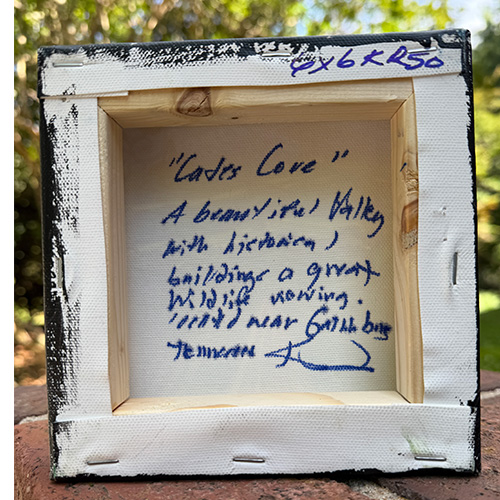 6x6 KR50
"Cades Cove"
A beautiful Valley
with historical
buildings a great
Wildlife viewing.
located near Gatlinburg
Tennessee